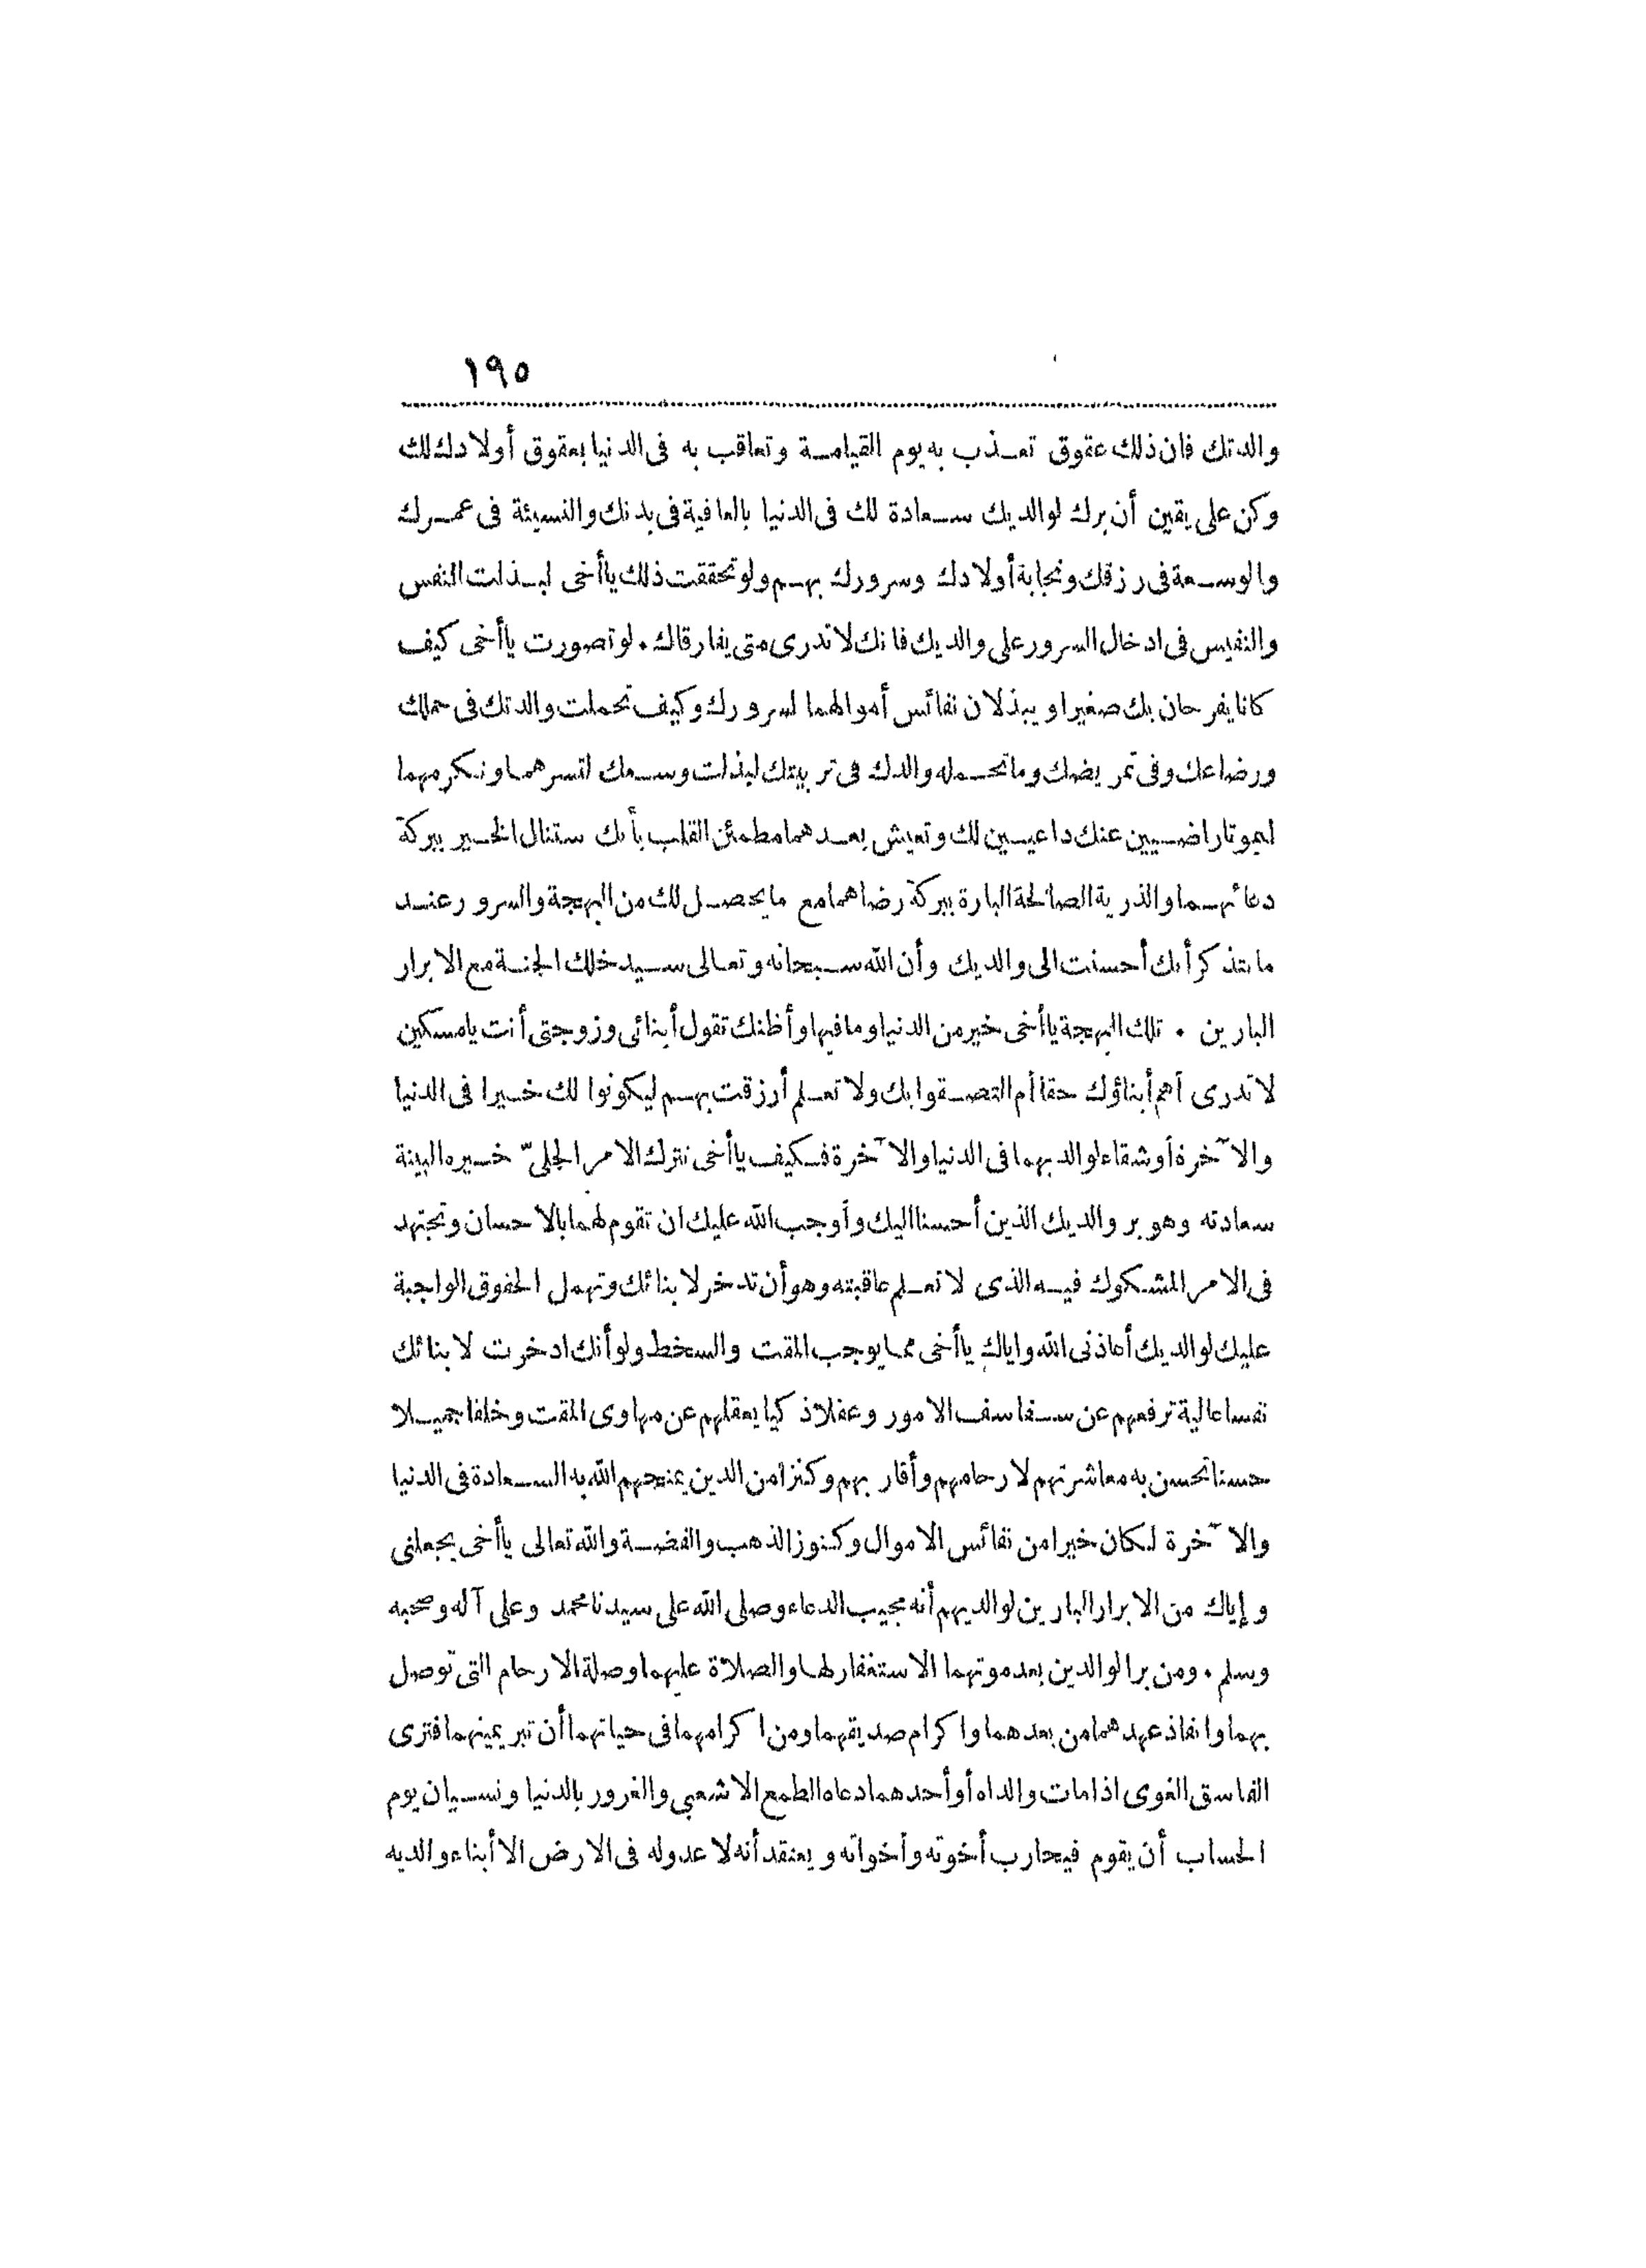 ١٩٥
والدتك فان ذلك عقوق تعذب به يوم القيامة وتعاقب به فى الدنيا بعقوق أولادك لك
وكن على يقين أن برك لوالديك سعادة لك فى الدنيا بالعافية فى بدنك والنسيئة فى عمرك
والوسعة فى رزقك ونجابة أولادك وسرورك بهم ولو تحققت ذلك ياأخى لبذلت النفس
والنفيس فى ادخال السرور على والديك فانك لا تدرى متى يفارقاك . لو تصورت ياأخى كيف
كانا يفرحان بك صغيرا ويبذلان نفائس أموالهما لسرورك وكيف تحملت والدتك فى حملك
ورضاعك وفى تمريضك وما تحمله والدك فى تربيتك لبذلت وسعك لتسرهما وتكرمهما
ليموتا راضيين عنك داعيين لك وتعيش بعدهما مطمئن القلب بأنك ستنال الخير ببركة
دعائهما والذرية الصالحة البارة ببركة رضاهما مع ما يحصل لك من البهجة والسرور عند
ما تتذكر أنك أحسنت الى والديك وأن الله سبحانه وتعالى سيدخلك الجنة مع الابرار
البارين . تلك البهجة ياأخى خير من الدنيا وما فيها وأظنك تقول أبنائى وزوجتى أنت يامسكين
لا تدرى أهم أبناؤك حقا أم التصقوا بك ولا تعلم أرزقت بهم ليكونوا لك خيرا فى الدنيا
والآخرة أو شقاء لوالديهما فى الدنيا والآخرة فكيف ياأخى تترك الامر الجلىّ خيره البينة
سعادته وهو بر والديك الذين أحسنا اليك وأوجب الله عليك ان تقوم لهما بالاحسان وتجتهد
فى الامر المشكوك فيه الذى لا تعلم عاقبته وهو أن تدخر لابنائك وتهمل الحقوق الواجبة
عليك لوالديك أعاذنى الله واياك ياأخى مما يوجب المقت والسخط ولو أنك ادخرت لابنائك
نفسا عالية ترفعهم عن سفاسف الامور وعقلا ذكيا يعقلهم عن مهاوى المقت وخلقا جميلا
حسنا تحسن به معاشرتهم لارحامهم وأقاربهم وكنزا من الدين يمنحهم الله به السعادة فى الدنيا
والآخرة لكان خيرا من نفائس الاموال وكنوز الذهب والفضة والله تعالى ياأخى يجعلنى
وإياك من الابرار البارين لوالديهم أنه مجيب الدعاء وصلى الله على سيدنا محمد وعلى آله وصحبه
وسلم . ومن بر الوالدين بعد موتهما الاستغفار لهما والصلاة عليهما وصلة الارحام التى توصل
بهما وانفاذ عهدهما من بعدهما واكرام صديقهما ومن اكرامهما فى حياتهما أن تبر يمينهما فترى
الفاسق الغوى اذا مات والداه أو أحدهما دعاه الطمع الاشعبي والغرور بالدنيا ونسيان يوم
الحساب أن يقوم فيحارب أخوته وأخواته ويعتقد أنه لا عدو له فى الارض الا أبناء والديه